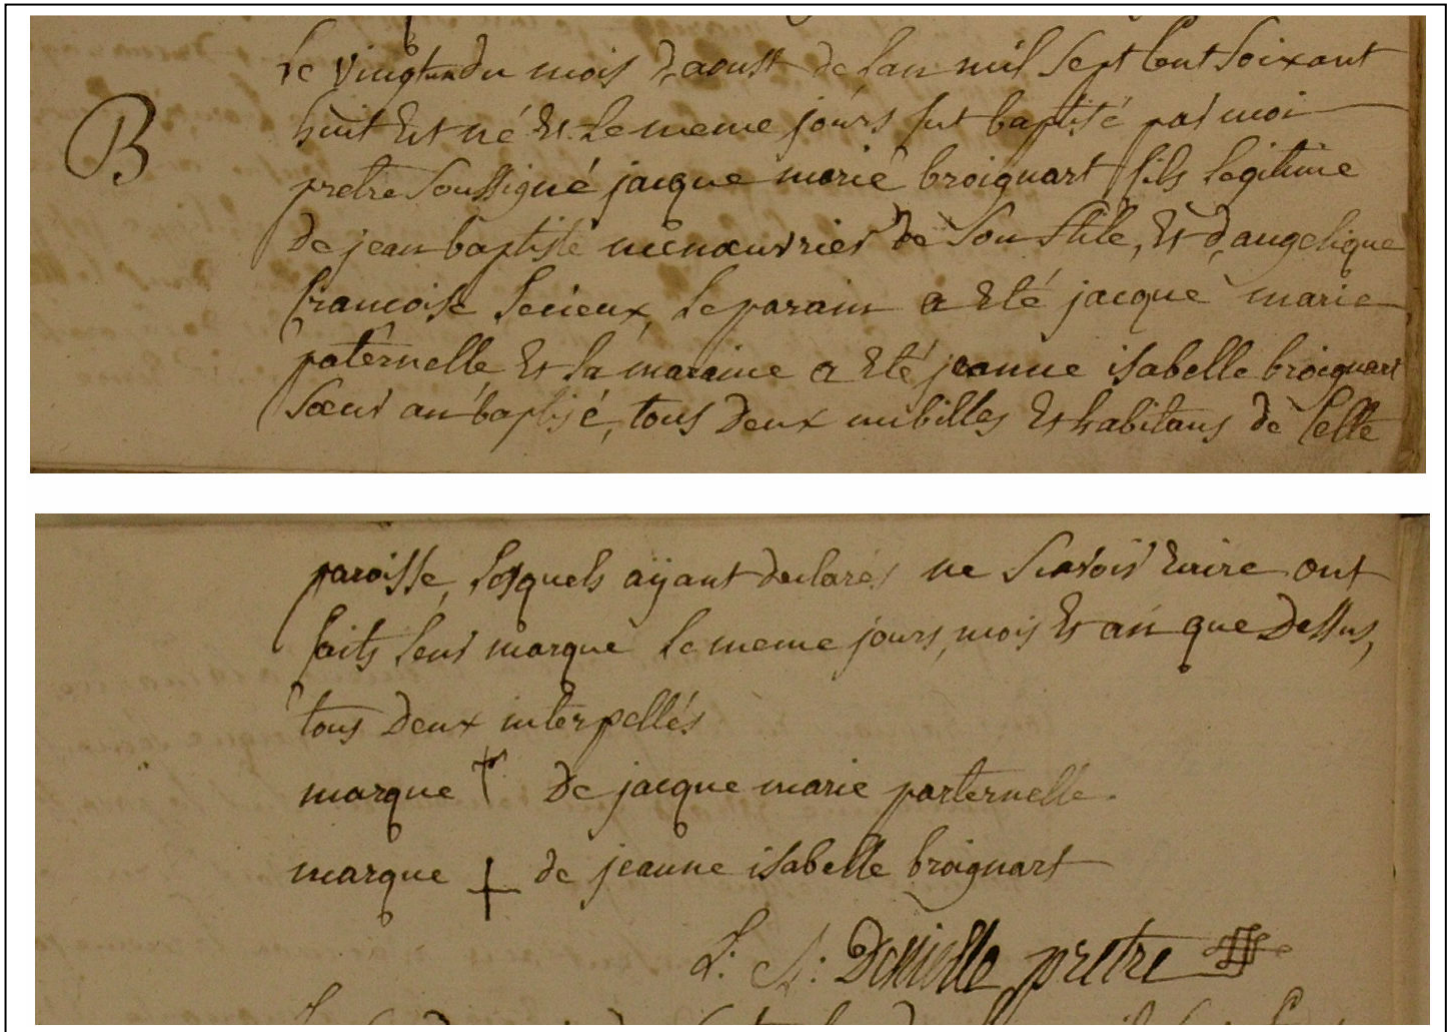 B
le vingt un du mois d'aoust de lan mil sept cent soixant
huit est né et le meme jours fut baptisé par moi
pretre soussigné jacque marie broignart fils legitime
de jean baptiste menœuvrier de son stile, et d'angelique
francoise lecieux, le parain a eté jacque marie
paternelle et la maraine a eté jeanne isabelle broignart
sœur au baptisé, tous deux nubilles et habitans de celle
paroisse, lesquels aÿant declarés ne scavoir ecrire ont
faits leur marque le meme jours, mois et an que dessus,
tous deux interpellés
marque de jacque marie parternelle.
marque de jeanne isabelle broignart
L: pretre